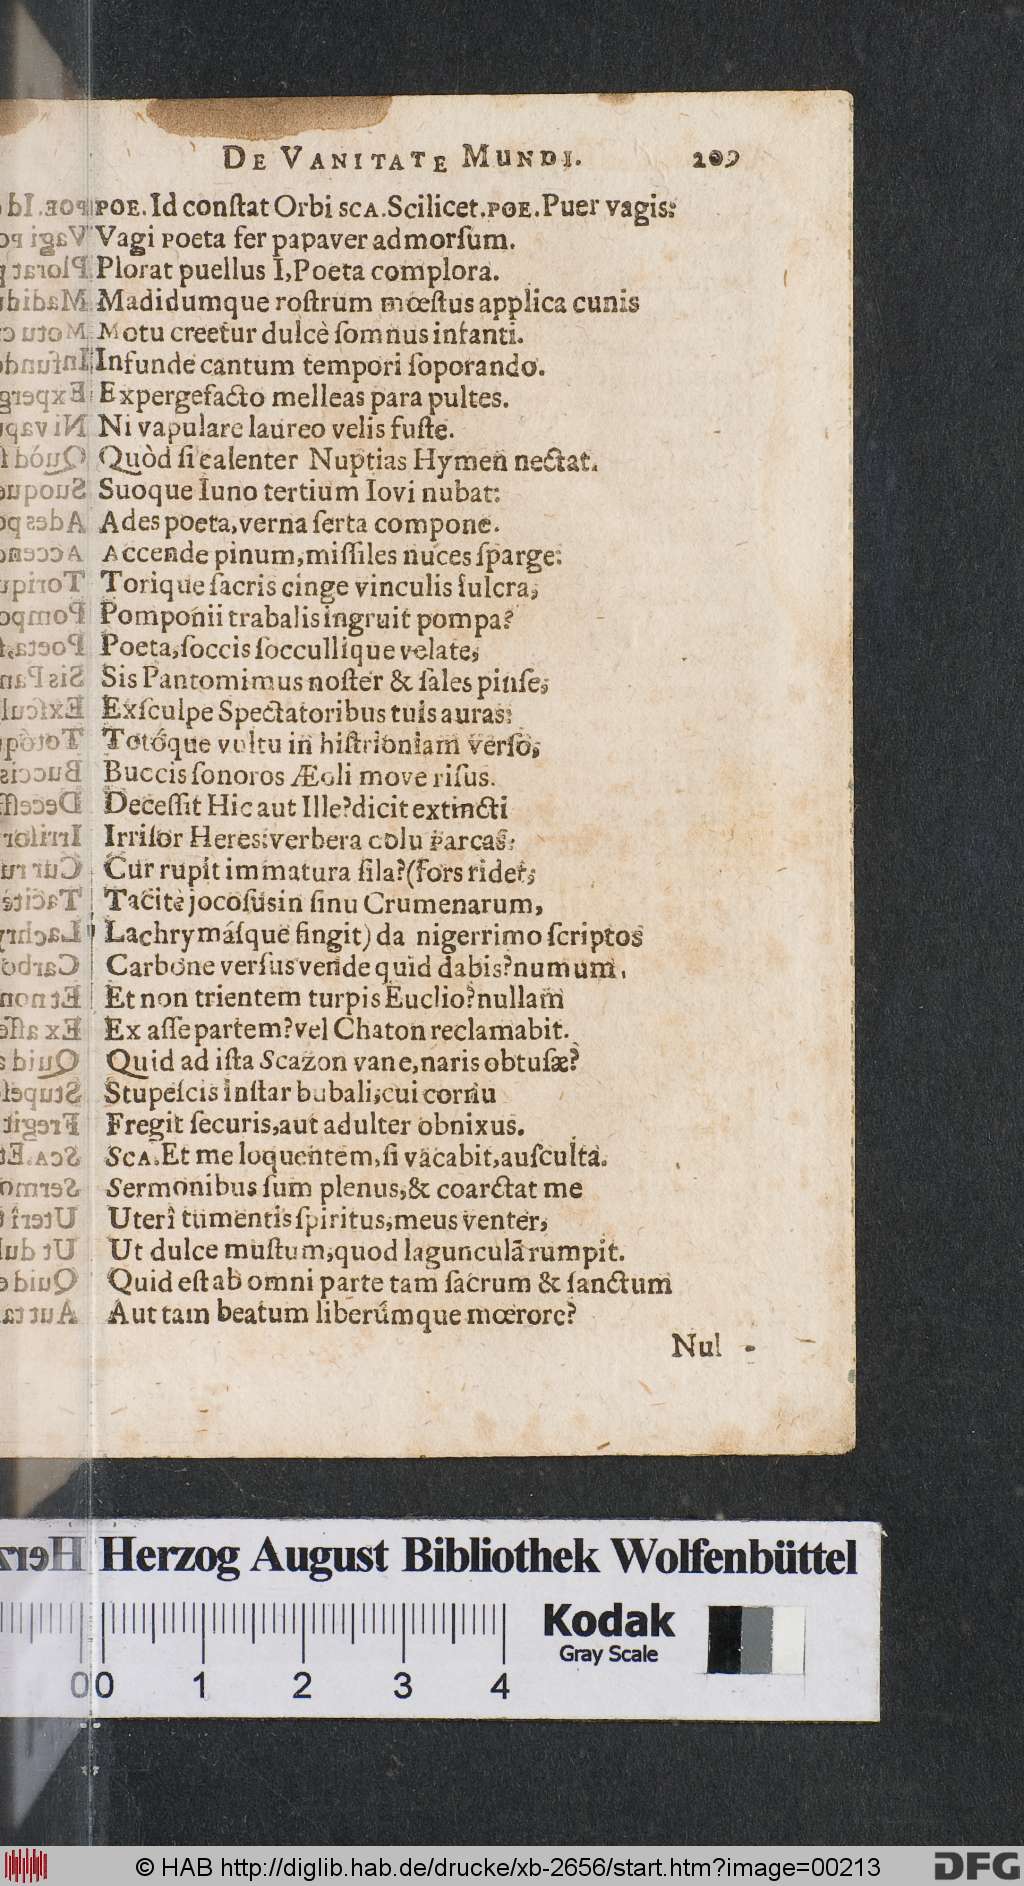 DE VANITATE MUNDI. 209
POE. Id conſtat Orbi SCA. Scilicet. POE. Puer vagis:
Vagi poeta fer papaver admorſum.
Plorat puellus I, Poeta complora.
Madidumque roſtrum mœſtus applica cunis
Motu creetur dulcè ſomnus infanti.
Infunde cantum tempori ſoporando.
Expergefacto melleas para pultes.
Ni vapulare laureo velis fuſte.
Quòd ſi calenter Nuptias Hymen nectat.
Suoque Iuno tertium Iovi nubat:
Ades poeta, verna ſerta compone.
Accende pinum, miſſiles nuces ſparge:
Torique ſacris cinge vinculis fulcra;
Pomponii trabalis ingruit pompa?
Poeta, ſoccis ſoccullique velate;
Sis Pantomimus noſter & ſales pinſe;
Exſculpe Spectatoribus tuis auras:
Totóque vultu in hiſtrioniam verſo;
Buccis ſonoros Æoli move riſus.
Deceſſit Hic aut Ille? dicit extincti
Irriſor Heres: verbera colu Parcas:
Cur rupit immatura fila? (Fors ridet;
Tacitè jocoſus in ſinu Crumenarum,
Lachrymáſque fingit) da nigerrimo ſcriptos
Carbone verſus vende quid dabis? numum.
Et non trientem turpis Euclio? nullam
Ex aſſe partem? vel Chaton reclamabit.
Quid ad iſta Scazon vane, naris obtuſæ?
Stupeſcis inſtar bubali; cui cornu
Fregit ſecuris, aut adulter obnixus.
SCA. Et me loquentem, ſi vacabit, auſculta.
Sermonibus ſum plenus, & coarctat me
Uterî tumentis ſpiritus; meus venter,
Ut dulce muſtum, quod lagunculã rumpit.
Quid eſt ab omni parte tam ſacrum & ſanctum
Aut tam beatum liberúmque mœrore?
Nul-
Herzog August Bibliothek Wolfenbüttel
Kodak
Gray Scale
0 0 1 2 3 4
© HAB http://diglib.hab.de/drucke/xb-2656/start.htm?image=00213
DFG